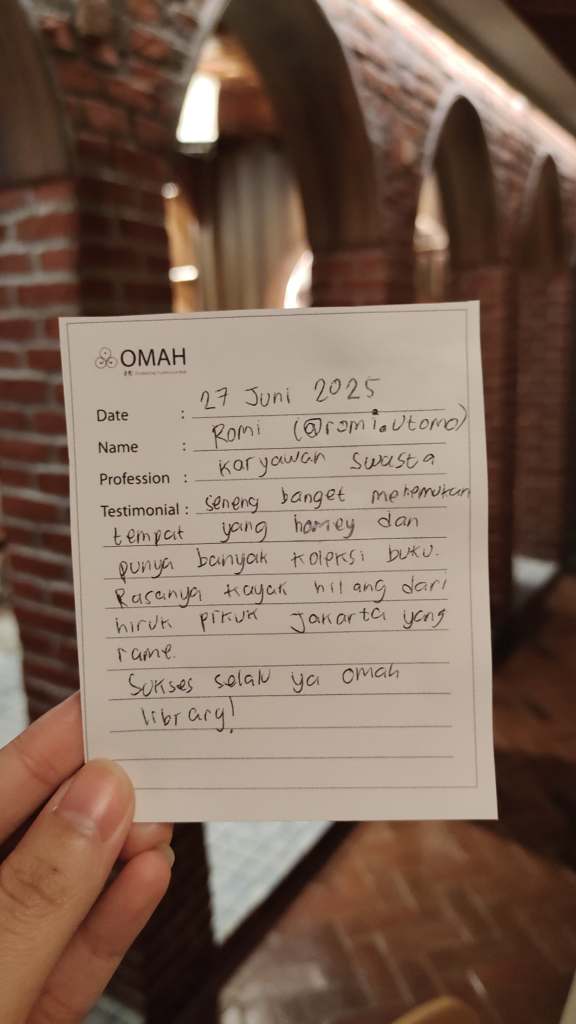 OMAH
Date : 27 Juni 2025
Name : Romi (@romi.utomo)
Profession : Karyawan Swasta
Testimonial : Seneng banget menemukan
tempat yang homey dan
punya banyak koleksi buku.
Rasanya kayak hilang dari
hiruk pikuk Jakarta yang
rame.
Sukses selalu ya omah
library!